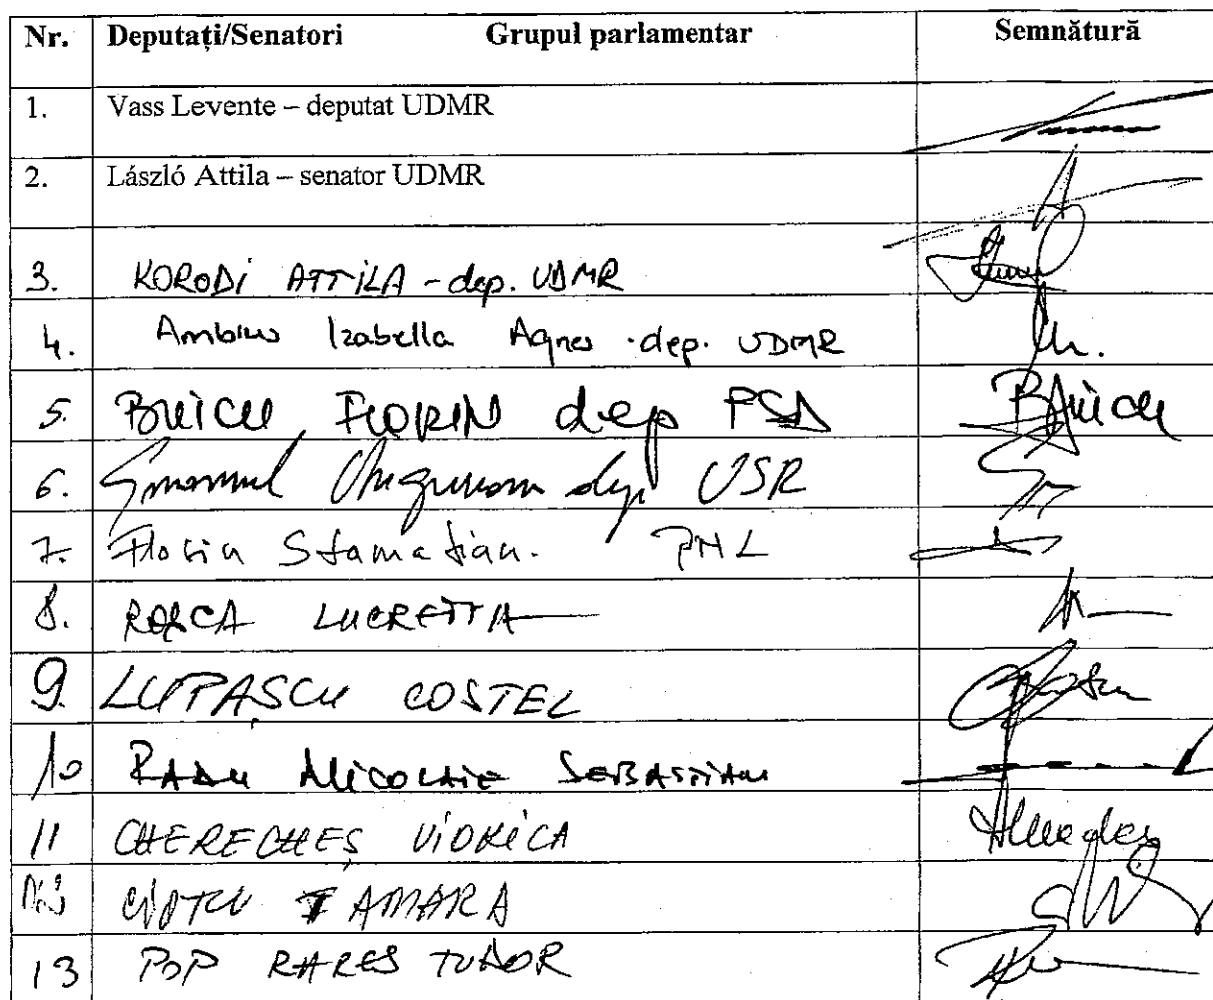 Nr. Deputați/Senatori Grupul parlamentar Semnătură
1. Vass Levente – deputat UDMR
2. László Attila – senator UDMR
3. KORODI ATTILA - dep. UDMR
4. Ambrus Izabella Agnes - dep. UDMR
5. BUICU FLORIN dep PSD
6. Emanuel Ungureanu dep USR
7. Florin Stamatian. PNL
8. ROȘCA LUCREȚIA
9. LUPAȘCU COSTEL
10 RADU NICOLAIE SEBASTIAN
11 CHERECHEȘ VIORICA
12 CIOFU TAMARA
13 POP RARES TUDOR